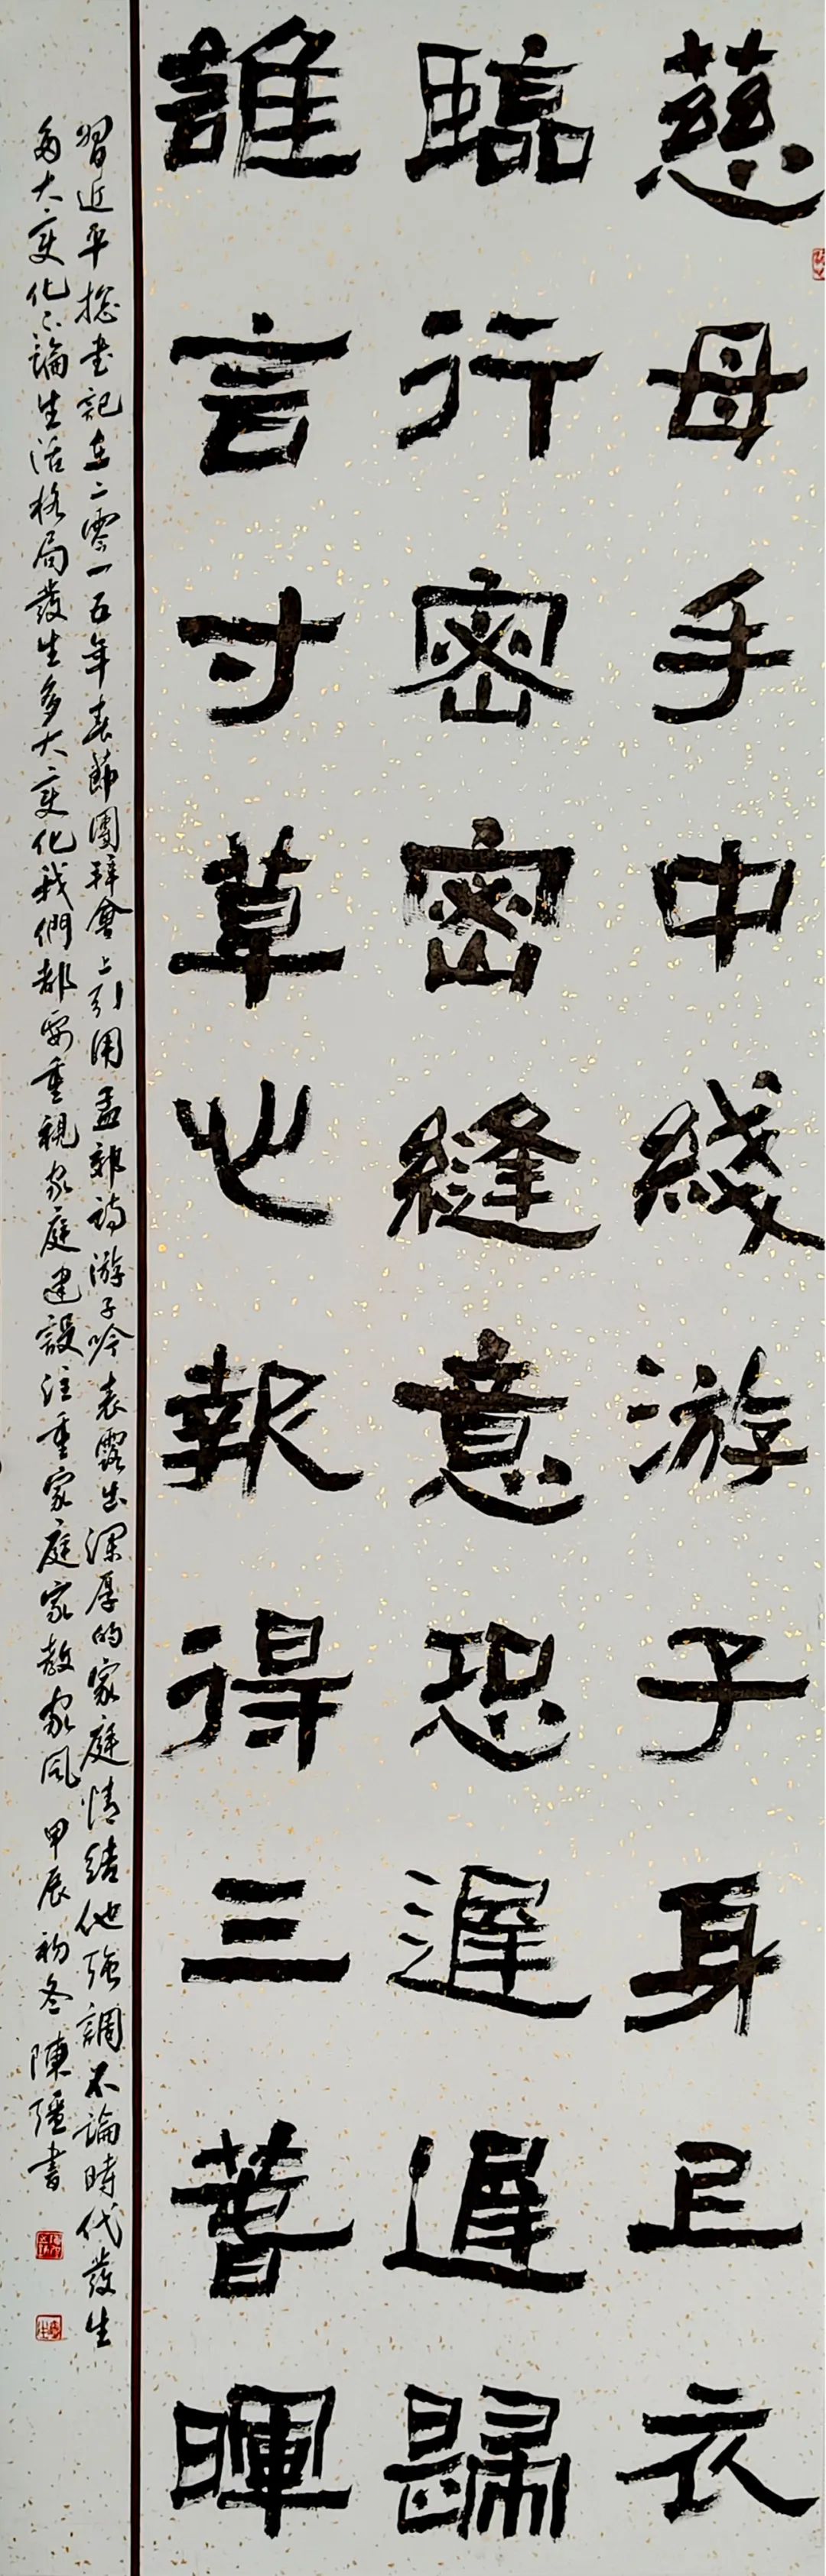 慈母手中綫游子身上衣
臨行密密縫意恐遲遲歸
誰言寸草心報得三春暉
習近平總書記在二零一五年春節團拜會上引用孟郊詩游子吟表露出深厚的家庭情結他強調不論時代發生
多大變化不論生活格局發生多大變化我們都要重視家庭建設注重家庭家教家風 甲辰初冬陳疆書